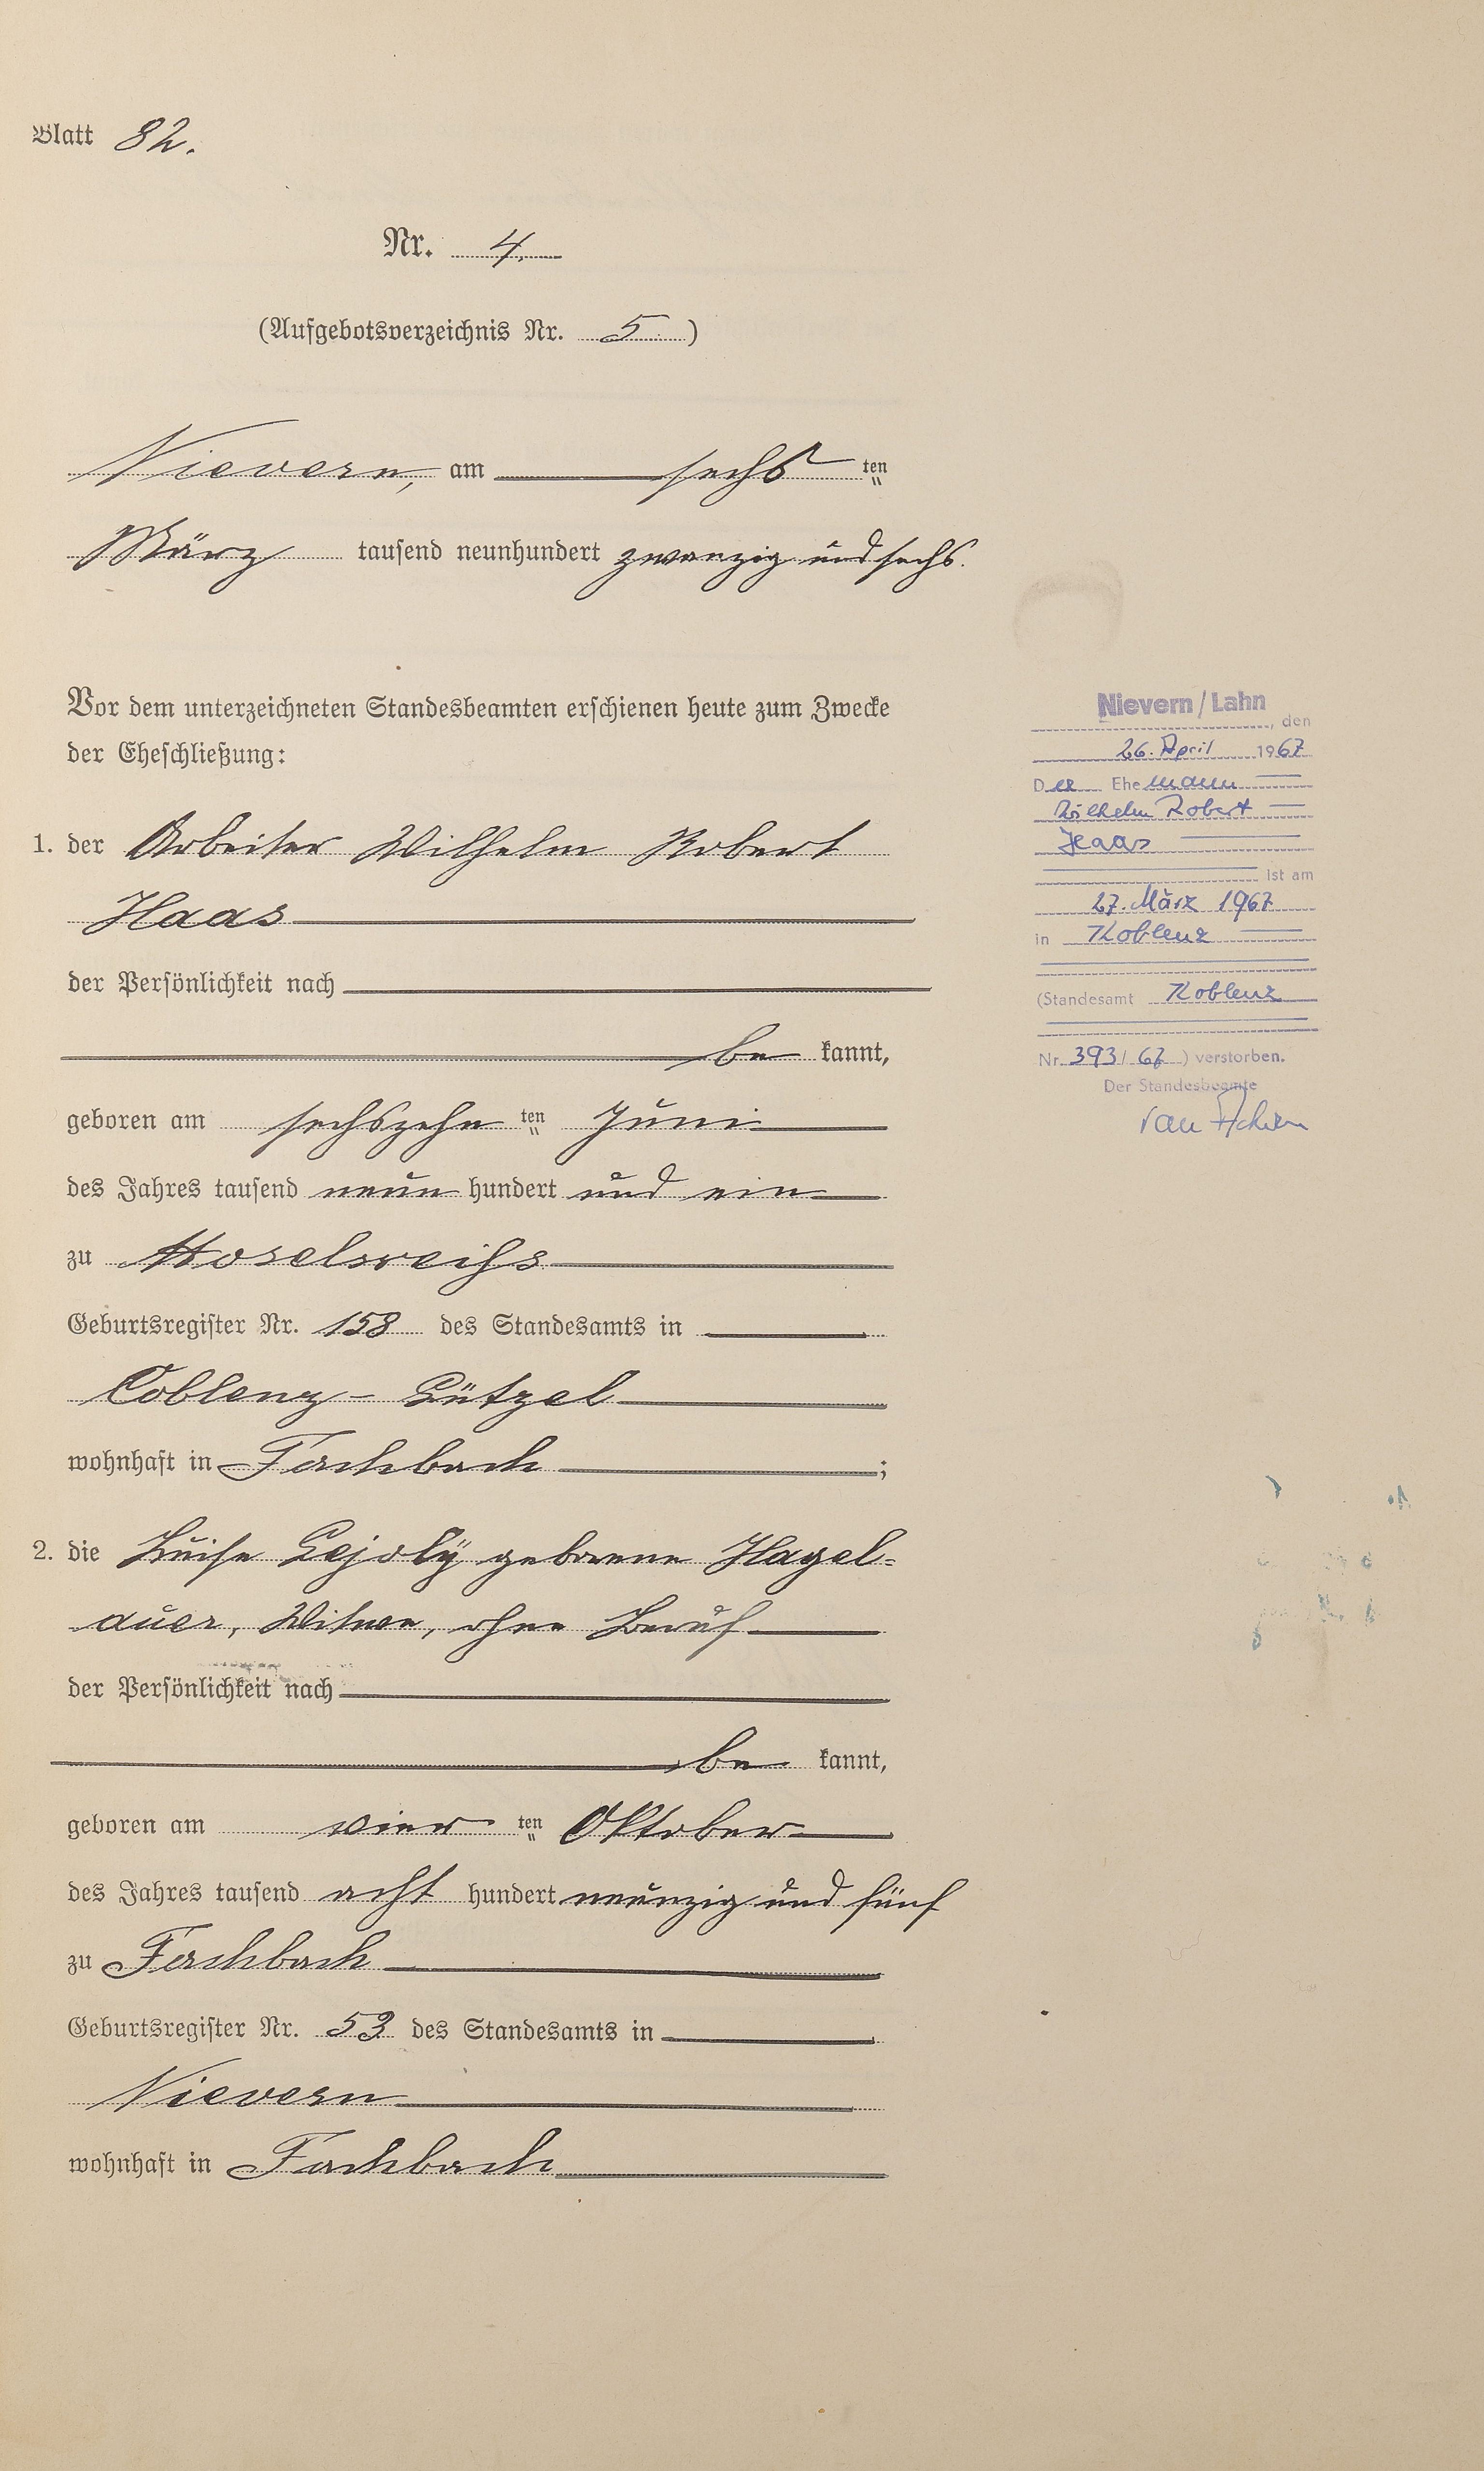 Blatt 82.
Nr. 4.
(Aufgebotsverzeichnis Nr. 5.)
Nievern, am sechsten
März tausend neunhundert zwanzig und sechs.
Vor dem unterzeichneten Standesbeamten erschienen heute zum Zwecke
der Eheschließung:
1. der Arbeiter Wilhelm Robert
Haas
der Persönlichkeit nach
be kannt,
geboren am sechszehn ten Juni
des Jahres tausend neun hundert und ein
zu Moselweihs
Geburtsregister Nr. 158 des Standesamts in
Coblenz - Lützel
wohnhaft in Fachbach;
2. die Luise Lejolÿ geborene Hagel=
auer, Witwe, ohne Beruf
der Persönlichkeit nach
be kannt,
geboren am vier ten Oktober
des Jahres tausend acht hundert neunzig und fünf
zu Fachbach
Geburtsregister Nr. 53 des Standesamts in
Nievern
wohnhaft in Fachbach
Nievern/Lahn, den
26. April 1967
Der Ehemann
Wilhelm Robert
Haas
ist am
27. März 1967
in Koblenz
(Standesamt Koblenz
Nr. 393/67) verstorben.
Der Standesbeamte